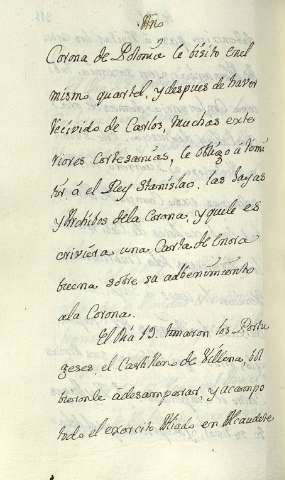 Corona de Polonia le visito en el
mismo quartel, y despues de haver
recivido de Carlos, muchas exte
riores cortesanias, le obligo à remi
tir à el Rey Stanislao, las Joyas
y Archibos dela Corona, y que le es
criviera una Carta de Enora
buena sobre su advenimiento
ala Corona.
El Dia 19. tomaron los Portu
geses el Castillo de Villena,
bieronle à desamparar, y acampo
todo el exercito Aliado en Alcaudete